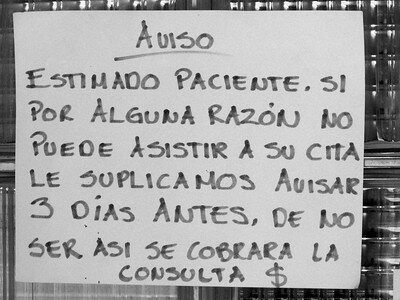 AVISO
ESTIMADO PACIENTE. SI
POR ALGUNA RAZÓN NO
PUEDE ASISTIR A SU CITA
LE SUPLICAMOS AVISAR
3 DÍAS ANTES, DE NO
SER ASI SE COBRARA LA
CONSULTA $